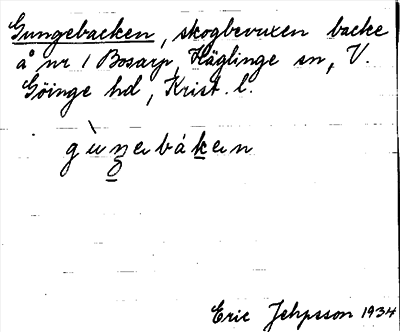 Gungebacken, skogbevuxen backe
å nr 1 Bosarp, Häglinge sn, V.
Göinge hd, Krist. l.
Eric Jehpsson 1934